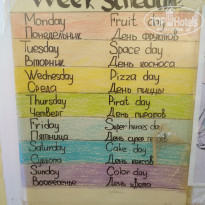 Week Schedule
Monday Fruit day
Понедельник День фруктов
Tuesday Space day
Вторник День космоса
Wednesday Pizza day
Среда День пиццы
Thursday Pirat day
Четверг День пиратов
Friday Super heroes day
Пятница День супер героев
Saturday Cake day
Суббота День кексов
Sunday Color day
Воскресенье День цвета